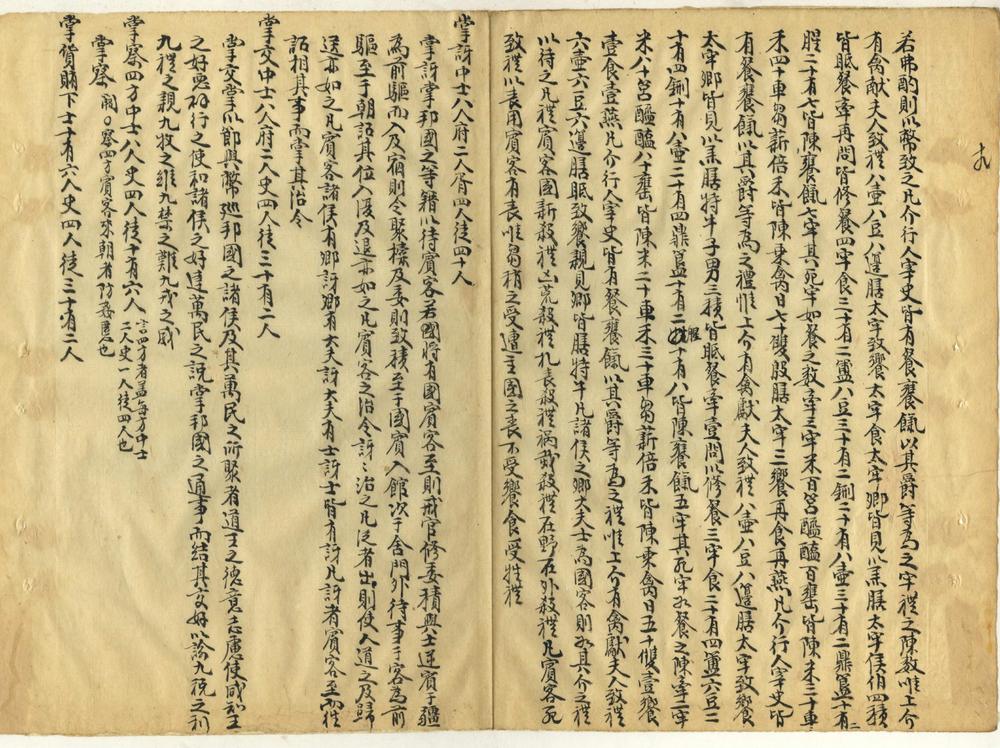 九
若弗酌則以幣致之凡介行人宰史皆有飧饔餼以其爵等為之牢禮之陳数唯上介
有禽獻夫人致禮八壺八豆八籩膳太牢致饗太牢食太牢卿皆見以羔膳太牢侯伯四積
皆眡飧牽再問皆修飧四牢食三十有二簠八豆三十有二鉶二十有八壺三十有二鼎簋十有二
腥二十有七皆陳饔餼七牢其死牢如飧之数牽三牢米百筥醯醢百罋皆陳米三十車
禾四十車芻薪倍禾皆陳乘禽日七十雙殷膳太牢三饗再食再燕凡介行人宰史皆
有飧饔餼以其爵等為之禮惟上介有禽獻夫人致禮八壺八豆八籩膳太牢致饗
太牢卿皆見以羔膳特牛子男三積皆眡飧牽壹問以修飧三牢食二十有四簠六豆二
十有四鉶十有八壺二十有四鼎簋十有二腥十有八皆陳饔餼五牢其死牢如飧之陳牽二牢
米八十筥醯醢八十罋皆陳米二十車禾三十車芻薪倍禾皆陳乘禽日五十雙壹饗
壹食壹燕凡介行人宰史皆有飧饔餼以其爵等為之禮唯上介有禽獻夫人致禮
六壺六豆六籩膳眡致饗親見卿皆膳特牛凡諸侯之卿大夫士為國客則如其介之禮
以待之凡禮賓客國新殺禮凶荒殺禮札喪殺禮禍烖殺禮在野在外殺禮凡賓客死
致禮以喪用賓客有喪唯芻稍之受遭主國之喪不受饗食受牲禮
掌訝中士八人府二人胥四人徒四十人
掌訝掌邦國之等籍以待賓客若國將有國賓客至則戒官修委積與士逆賓于疆
為前驅而入及宿則令聚柝及委則致積至于國賓入館次于舍門外待事于客為前
驅至于朝詔其位入復及退亦如之凡賓客之治令訝〻治之凡從者出則使人道之及歸
送亦如之凡賓客諸侯有卿訝卿有大夫訝大夫有士訝士皆有訝凡訝者賓客至而往
詔相其事而掌其治令
掌交中士八人府二人史四人徒三十有二人
掌交掌以節與幣巡邦國之諸侯及其萬民之所聚者道王之德意志慮使咸知王
之好惡辟行之使和諸侯之好達萬民之說掌邦國之通事而結其交好以諭九稅之利
九禮之親九牧之維九禁之難九戎之威
掌察四方中士八人史四人徒十有六人言四方者盖每方中士二人史一人徒四人也
掌察闕○察四方賓客來朝者防姦慝也
掌貨賄下士十有六人史四人徒三十有二人